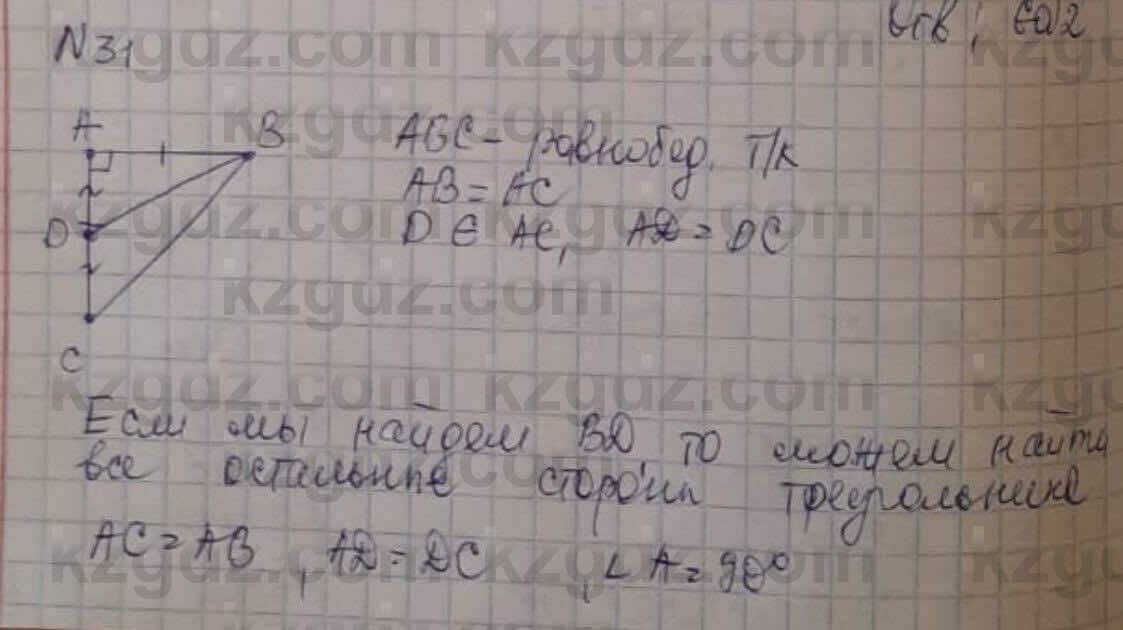 N31
A
B
D
C
ABC - равнобед. т/к
AB = AC
D ∈ AC, AD = DC
Если мы найдем BD, то можем найти
все остальные стороны треугольника
AC = AB, AD = DC, ∠A = 90°
kzgdz.com